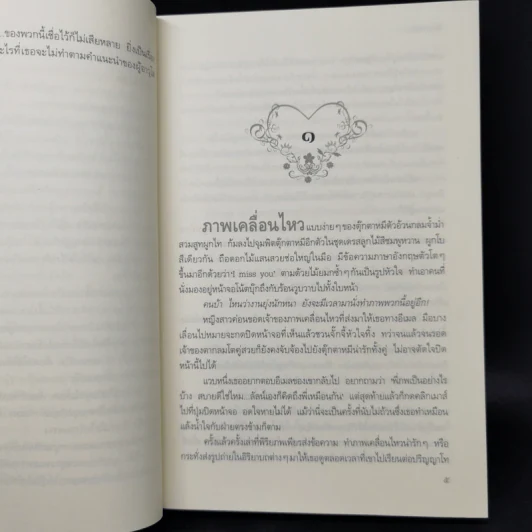 ...ของพวกนี้เชื่อไว้ก็ไม่เสียหลาย ยิ่งเป็นเรื่อง
อะไรที่เธอจะไม่ทำตามคำแนะนำของผู้อาวุโส
๑
ภาพเคลื่อนไหว แบบง่ายๆ ของตุ๊กตาหมีตัวอ้วนกลมจ้ำม่ำ
สวมสูทผูกไท ก้มลงไปจุมพิตตุ๊กตาหมีอีกตัวในชุดเดรสลูกไม้สีชมพูหวาน ผูกโบ
สีเดียวกัน ถือดอกไม้แสนสวยช่อใหญ่ในมือ มีข้อความภาษาอังกฤษตัวโตๆ
ขึ้นมาอีกด้วยว่า 'I miss you' ตามด้วยไม้ยมกซ้ำๆ กันเป็นรูปหัวใจ ทำเอาคนที่
นั่งมองอยู่หน้าจอโน้ตบุ๊กถึงกับร้อนวูบวาบไปทั้งใบหน้า
คนบ้า ไหนว่างานยุ่งนักหนา ยังจะมีเวลามานั่งทำภาพพวกนี้อยู่อีก!
หญิงสาวค่อนขอดเจ้าของภาพเคลื่อนไหวที่ส่งมาให้เธอทางอีเมล มือบาง
เลื่อนไปหมายจะกดปิดหน้าจอที่เห็นแล้วชวนจั๊กจี้หัวใจทิ้ง ทว่าจนแล้วจนรอด
เจ้าของตากลมโตคู่สวยก็ยังคงจับจ้องไปยังตุ๊กตาหมีน่ารักทั้งคู่ ไม่อาจตัดใจปิด
หน้านี้ไปได้
แวบหนึ่งเธออยากตอบอีเมลของเขากลับไป อยากถามว่า 'พี่ภพเป็นอย่างไร
บ้าง สบายดีใช่ไหม...ตัลน์เองก็คิดถึงพี่เหมือนกัน' แต่สุดท้ายแล้วก็กดคลิกเมาส์
ไปที่ปุ่มปิดหน้าจอ อดใจหายไม่ได้ แม้ว่านี่จะเป็นครั้งที่นับไม่ถ้วนซึ่งเธอทำเหมือน
แล้งน้ำใจกับฝ่ายตรงข้ามก็ตาม
ครั้งแล้วครั้งเล่าที่พิริยภพเพียรส่งข้อความ ทำภาพเคลื่อนไหวน่ารักๆ หรือ
กระทั่งส่งรูปถ่ายในอิริยาบถต่างๆ มาให้เธอดูตลอดเวลาที่เขาไปเรียนต่อปริญญาโท